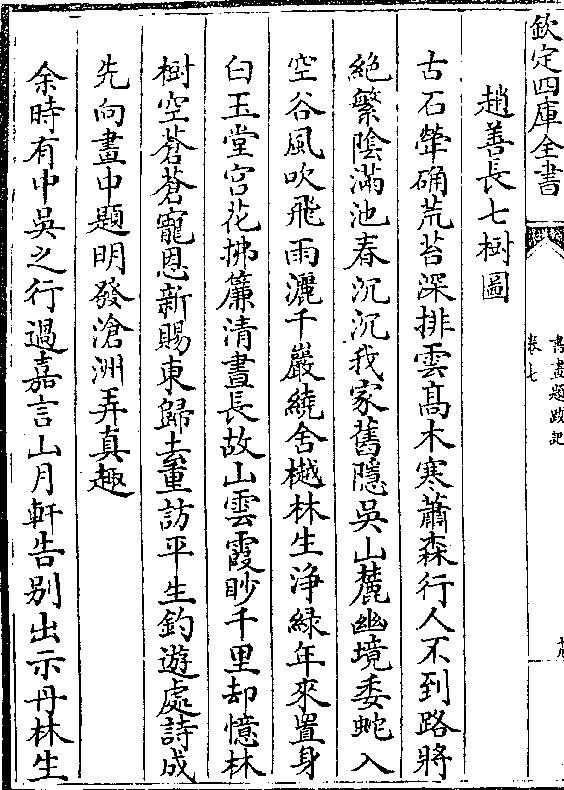 欽定四庫全書
書畫題跋記
卷七
趙善長七樹圖
古石犖确荒苔深排雲髙木寒蕭森行人不到路將
絶繁陰滿池春沉沉我家舊隱吳山麓幽境委蛇入
空谷風吹飛雨灑千巖繞舍樾林生浄緑年來置身
白玉堂宫花拂簾清晝長故山雲霞眇千里却憶林
樹空蒼蒼寵恩新賜東歸去重訪平生釣遊處詩成
先向畫中題明發滄洲弄真趣
余時有中吳之行過嘉言山月軒告别出示丹林生